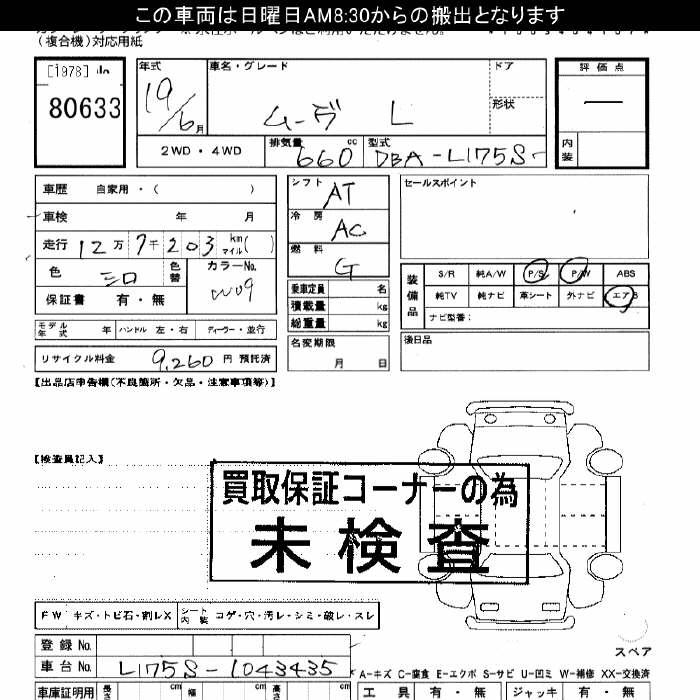 この車両は日曜日AM8:30からの搬出となります
(複合機)対応用紙
[1978]
80633
年式
19/6月
車名・グレード
ムーヴ L
ドア
形状
評価点
—
内装
2WD・4WD
排気量 660 cc
型式 DBA-L175S-
車歴 自家用・( )
車検 年 月
走行 12万7千203 km マイル( )
色 シロ 色替
カラーNo. W09
保証書 有・無
モデル年式 年 ハンドル 左・右 ディーラー・並行
リサイクル料金 9,260 円 預託済
シフト AT
冷房 AC
燃料 G
乗車定員 名
積載量 kg
総重量 kg
名変期限
月 日
セールスポイント
装備品
S/R 純A/W P/S P/W ABS
純TV 純ナビ 革シート 外ナビ エアB
ナビ型番:
後日品
【出品店申告欄(不良箇所・欠品・注意事項等)】
【検査員記入】
買取保証コーナーの為
未検査
FW キズ・トビ石・割レX シート内装 コゲ・穴・汚レ・シミ・破レ・スレ
登録No.
車台No. L175S-1043435
スペア
A-キズ C-腐食 E-エクボ S-サビ U-凹ミ W-補修 XX-交換済
車庫証明用 長さ cm 幅 cm 高さ cm
工具 有・無 ジャッキ 有・無